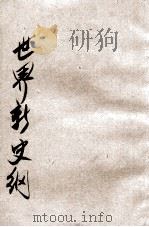 研狗
世界新史綱
mtoou.info